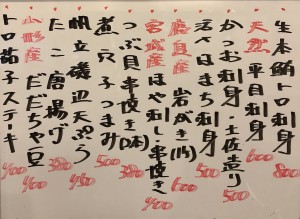 生本鮪トロ刺身 800
天然 平目刺身 600
かつお刺身・土佐造り 500
活さはまち刺身 500
鹿島産 岩がき(1ヶ) 600
宮城産 ほや刺し・串焼き 400
つぶ貝串焼き(2本)
煮穴子つまみ
帆立磯辺天ぷら
たこ唐揚げ 380
山形産 だだちゃ豆 400
トロ茄子ステーキ 400